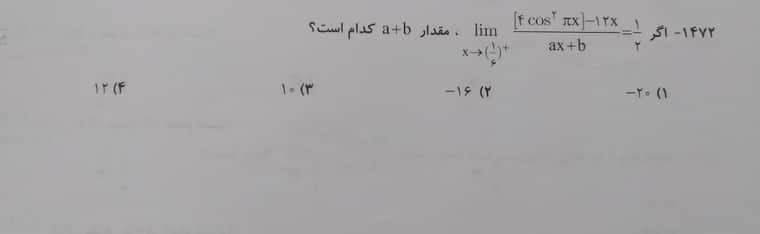 ۱۴۷۲- اگر lim x→(۱/۶)⁺ ([۴cos²πx]-۱۲x)/(ax+b) = ۱/۲ ، مقدار a+b کدام است؟
۱) -۲۰ ۲) -۱۶ ۳) ۱۰ ۴) ۱۲